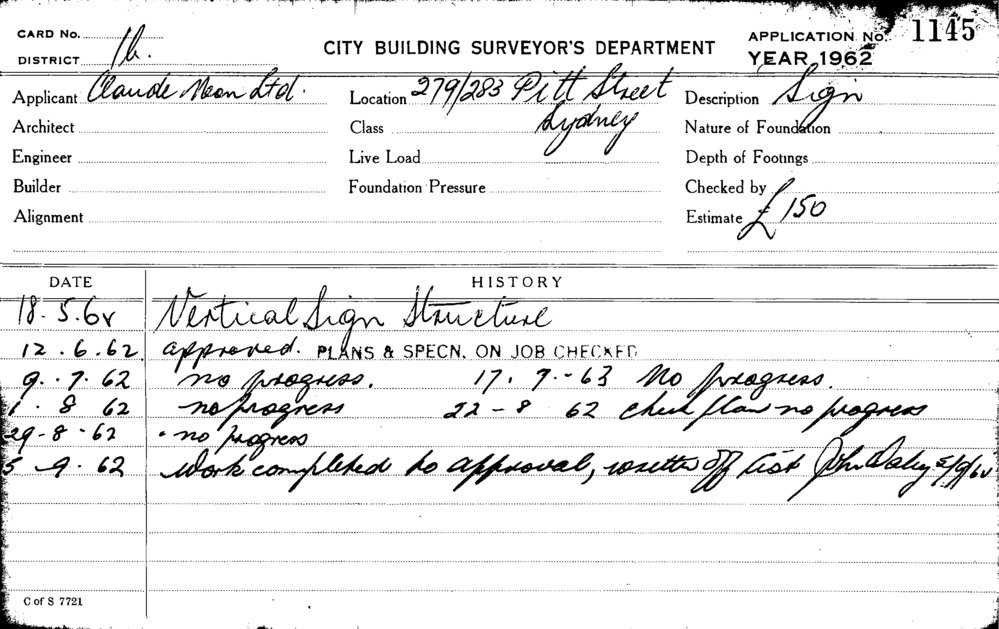 CARD No. 1b. CITY BUILDING SURVEYOR'S DEPARTMENT APPLICATION No. 1145
DISTRICT YEAR 1962
Applicant Claude Neon Ltd. Location 279/283 Pitt Street Description Sign
Architect Class Sydney Nature of Foundation
Engineer Live Load Depth of Footings
Builder Foundation Pressure Checked by
Alignment Estimate £150
DATE HISTORY
18.5.62 Vertical Sign Structure
12.6.62. approved. PLANS & SPECN. ON JOB CHECKED
9.7.62 no progress. 17.7-63 No progress.
1.8 62 no progress 22-8 62 check plan no progress
29-8-62 no progress
5-9.62 work completed to approval, off list John Daley 5/9/62
C of S 7721